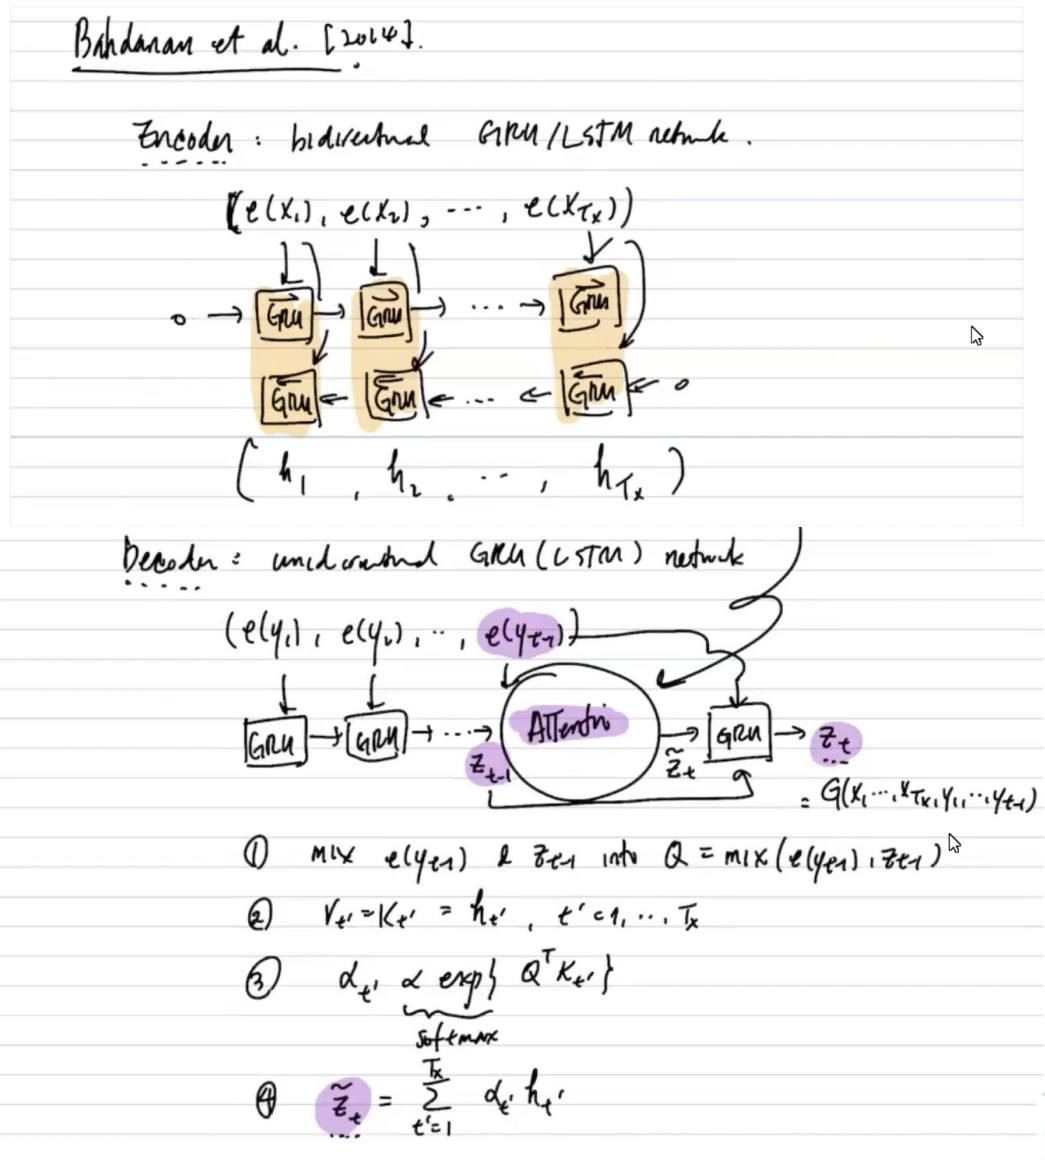 Bahdanau et al. [2014].
Encoder : bidirectional GRU/LSTM network.
(e(x₁), e(x₂), ..., e(x_{Tx}))
0 → GRU → GRU → ... → GRU
GRU ← GRU ← ... ← GRU ← 0
(h₁, h₂, ..., h_{Tx})
Decoder : unidirectional GRU(LSTM) network
(e(y₁), e(y₂), .., e(y_{t-1}))
GRU → GRU → ... → Attention → GRU → z_t
z_{t-1} z̃_t
= G(x₁...,x_{Tx}, y₁,...,y_{t-1})
① mix e(y_{t-1}) & z_{t-1} into Q = mix(e(y_{t-1}), z_{t-1})
② V_{t'} = K_{t'} = h_{t'} , t' = 1, ..., Tx
③ α_{t'} ∝ exp{ Q^T K_{t'} }
softmax
④ z̃_t = Σ_{t'=1}^{Tx} α_{t'} h_{t'}